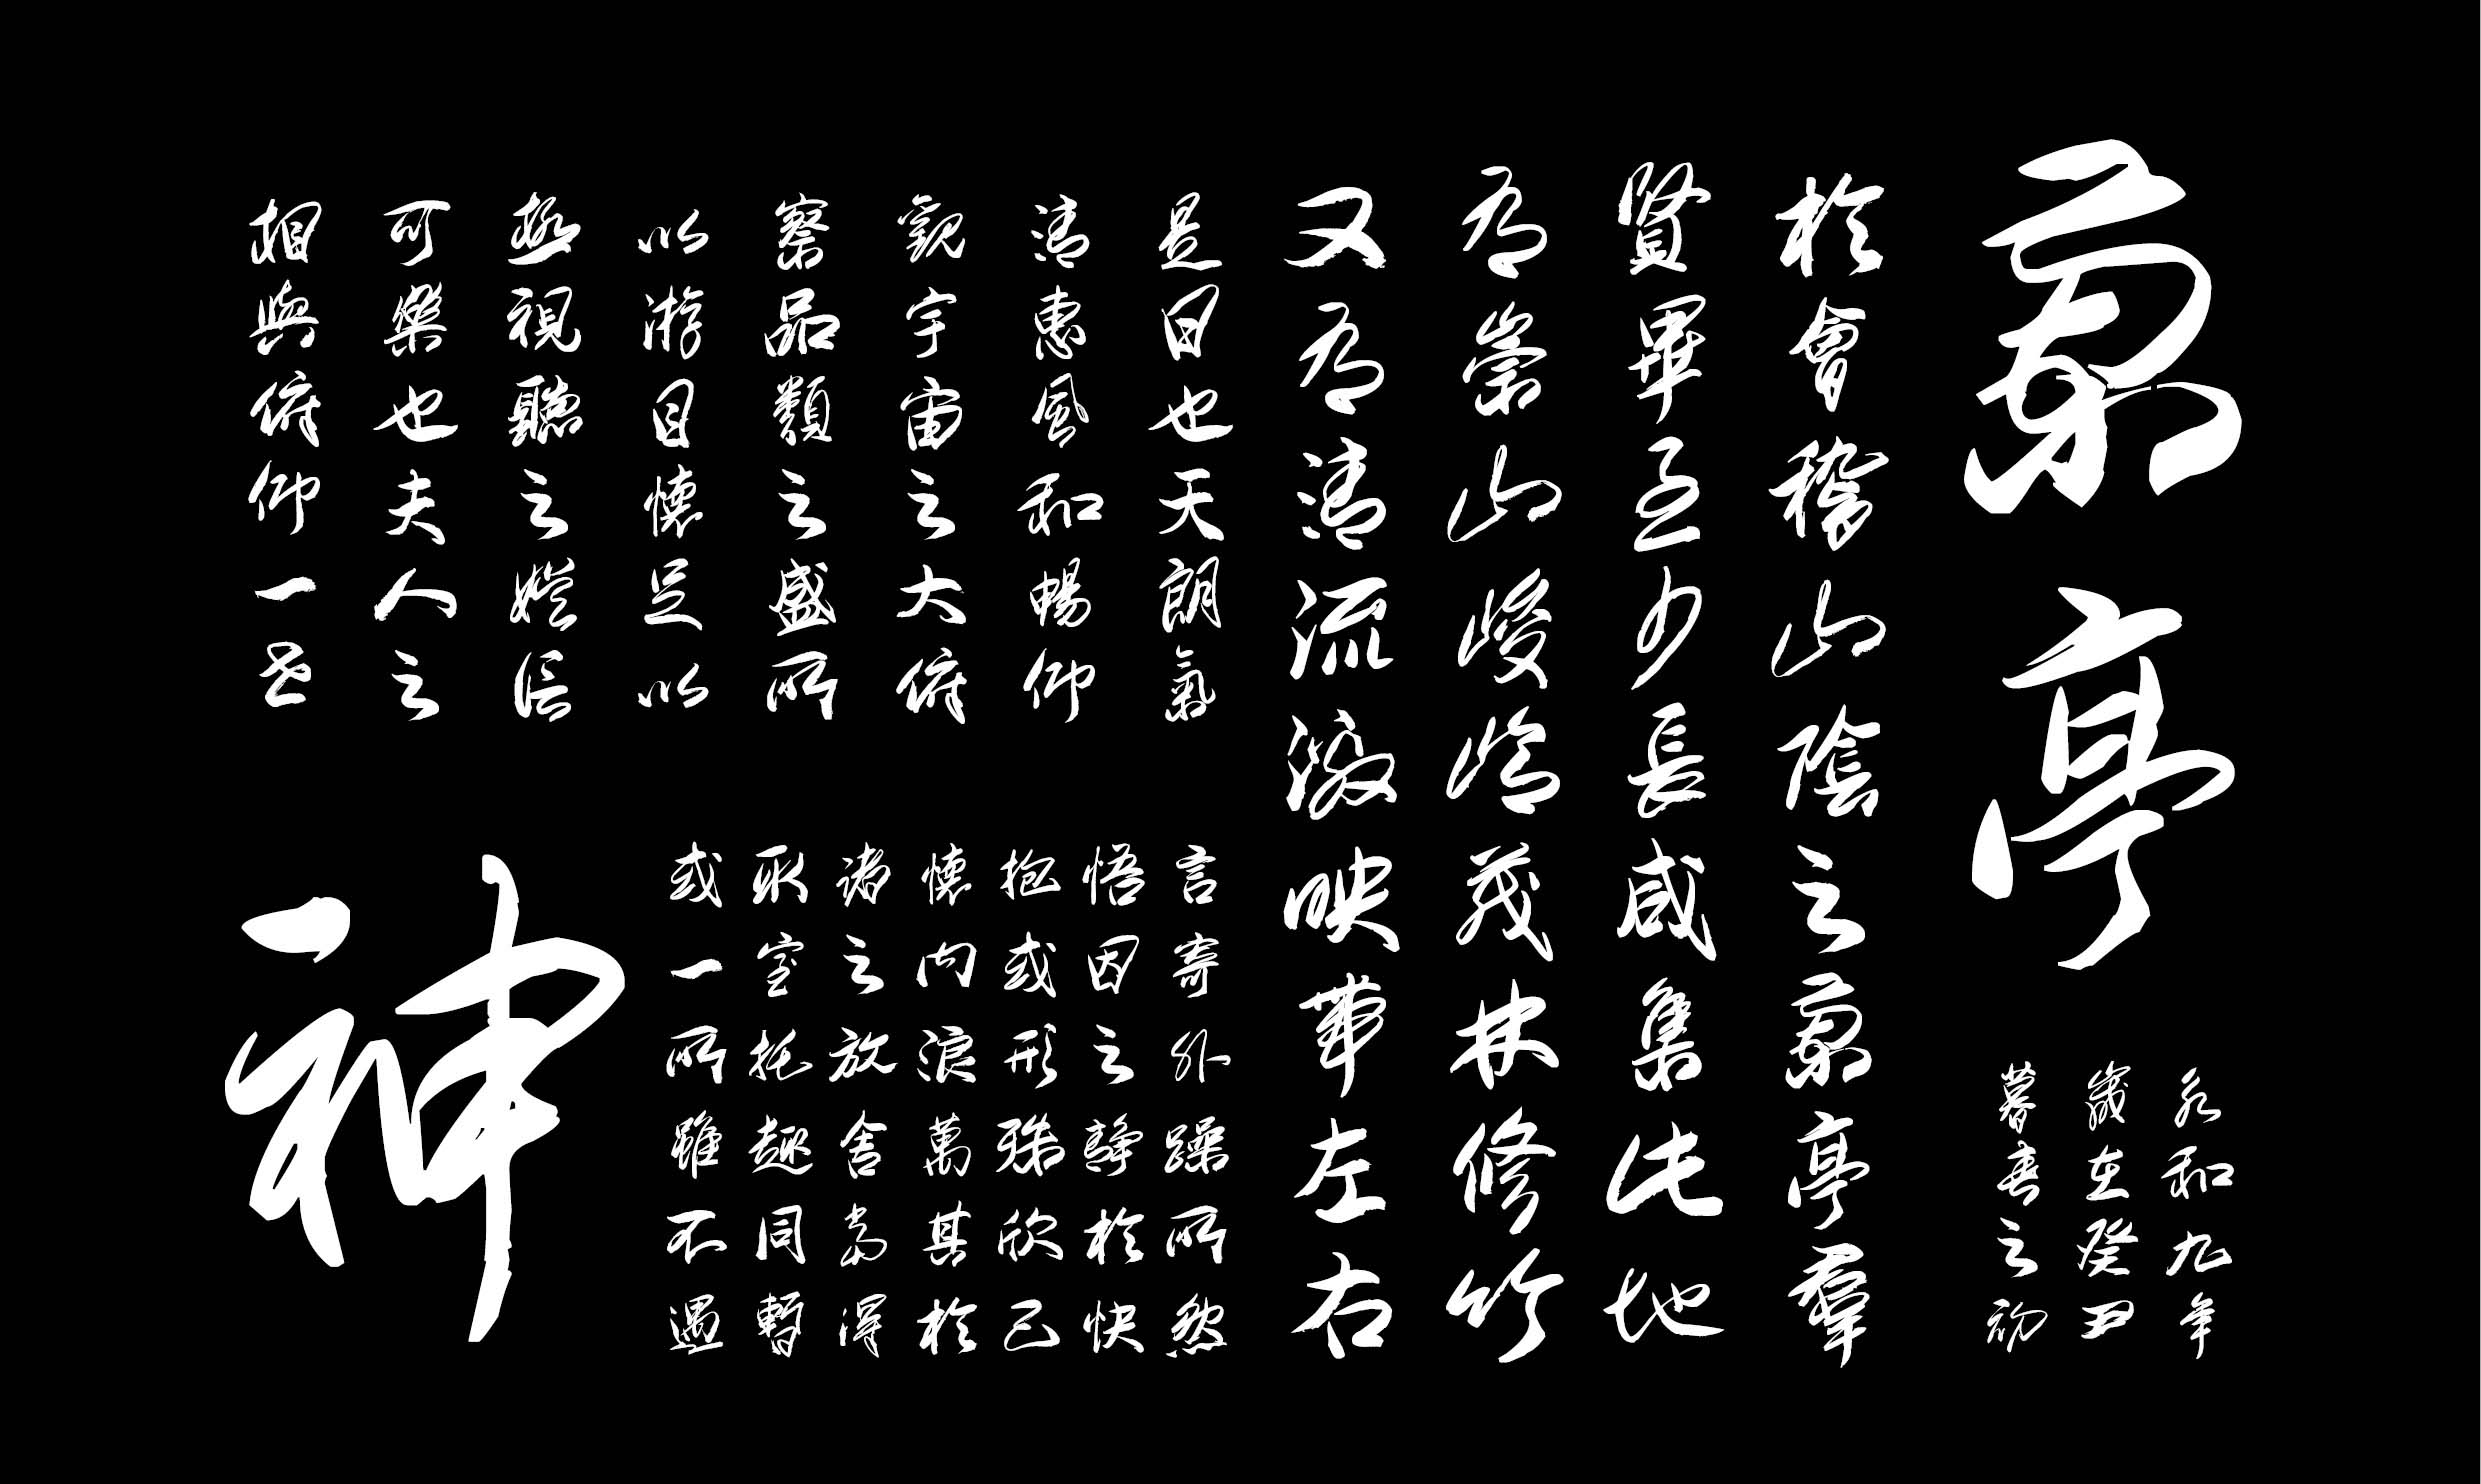 蘭亭
永和九年
歲在癸丑
暮春之初
於會稽山陰之蘭亭羣
賢畢至少長咸集此地
有崇山峻嶺茂林脩竹
又有清流激映帶左右
是日也天朗氣
清惠風和暢仰
觀宇宙之大俯
察品類之盛所
以遊目懷足以
極視聽之娛信
可樂也夫人之
相與俯仰一世
或取諸懷抱悟言
一室之內或因寄
所託放浪形之外
雖趣舍萬殊靜躁
不同為其欣於所
遇暫得於己快然
神